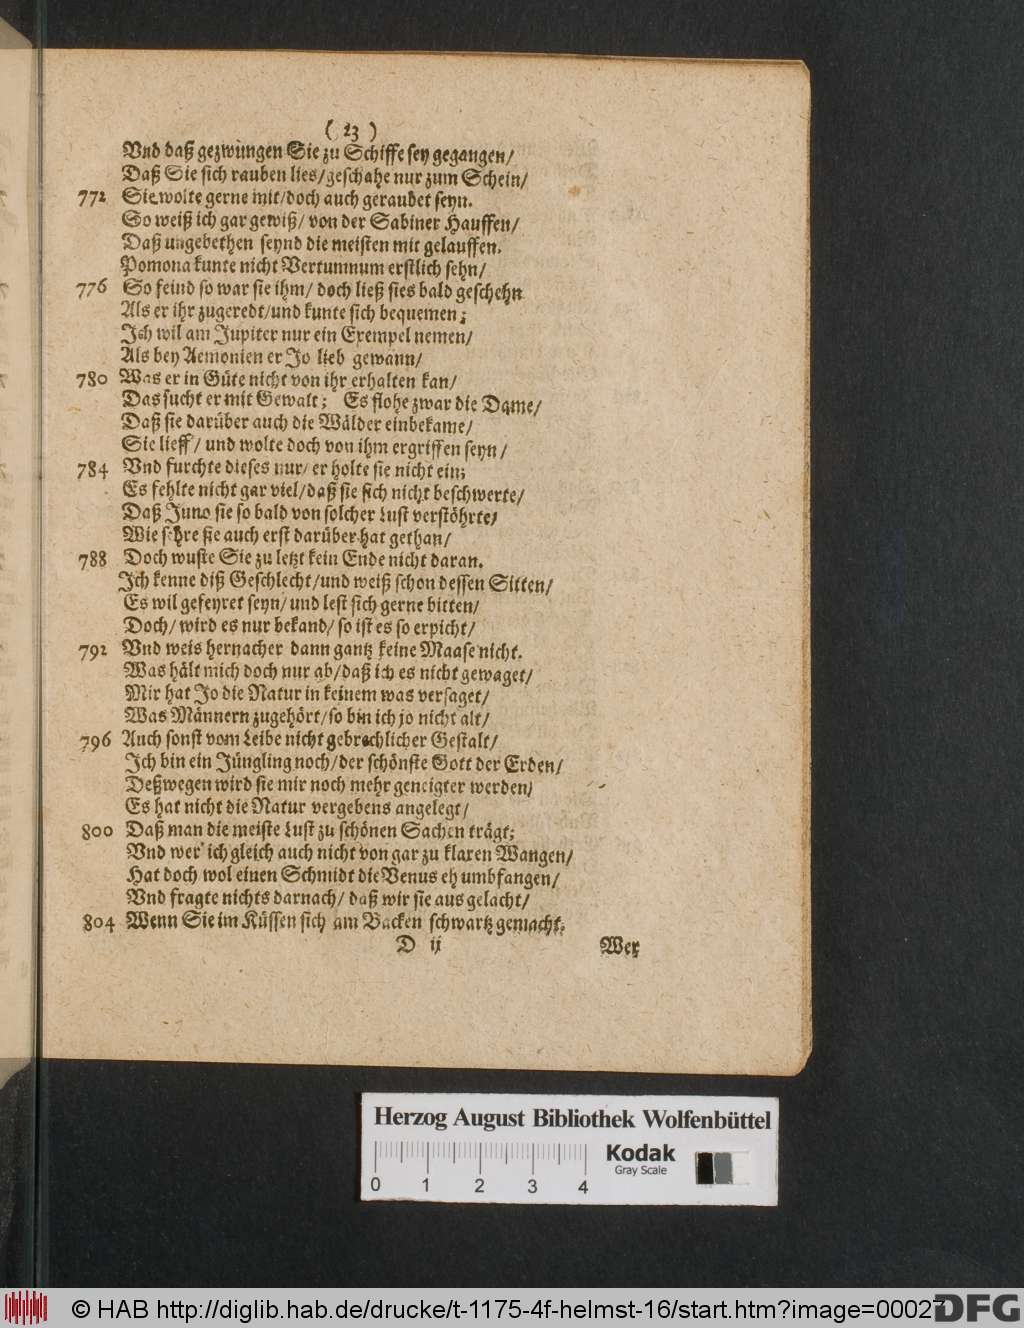 ( 23 )
Vnd daß gezwüngen Sie zu Schiffe sey gegangen/
Daß Sie sich rauben lies/geschahe nur zum Schein/
772 Sie wolte gerne mit/doch auch geraubet seyn.
So weiß ich gar gewiß/ von der Sabiner Hauffen/
Daß ungebethen seynd die meisten mit gelauffen.
Pomona kunte nicht Vertumnum erstlich sehn/
776 So feind so war sie ihm/ doch ließ sies bald geschehn
Als er ihr zugeredt/und kunte sich bequemen;
Ich wil am Jupiter nur ein Exempel nemen/
Als bey Aemonien er Jo lieb gewann/
780 Was er in Güte nicht von ihr erhalten kan/
Das sucht er mit Gewalt; Es flohe zwar die Dame/
Daß sie darüber auch die Wälder einbekame/
Sie lieff/ und wolte doch von ihm ergriffen seyn/
784 Vnd furchte dieses nur/ er holte sie nicht ein;
Es fehlte nicht gar viel/daß sie sich nicht beschwerte/
Daß Juno sie so bald von solcher Lust verstöhrte/
Wie sehre sie auch erst darüber hat gethan/
788 Doch wuste Sie zu letzt kein Ende nicht daran.
Ich kenne diß Geschlecht/und weiß schon dessen Sitten/
Es wil gefeyret seyn/ und lest sich gerne bitten/
Doch/ wird es nur bekand/ so ist es so erpicht/
792 Vnd weis hernacher dann gantz keine Maase nicht.
Was hält mich doch nur ab/daß ich es nicht gewaget/
Mir hat Jo die Natur in keinem was versaget/
Was Männern zugehört/so bin ich jo nicht alt/
796 Auch sonst vom Leibe nicht gebrechlicher Gestalt/
Ich bin ein Jüngling noch/der schönste Gott der Erden/
Deßwegen wird sie mir noch mehr geneigter werden/
Es hat nicht die Natur vergebens angelegt/
800 Daß man die meiste Lust zu schönen Sachen trägt;
Vnd wer' ich gleich auch nicht von gar zu klaren Wangen/
Hat doch wol einen Schmidt die Venus eh umbfangen/
Vnd fragte nichts darnach/ daß wir sie aus gelacht/
804 Wenn Sie im Küssen sich am Backen schwartz gemacht.
D ij Wer
Herzog August Bibliothek Wolfenbüttel
Kodak
Gray Scale
0 1 2 3 4
© HAB http://diglib.hab.de/drucke/t-1175-4f-helmst-16/start.htm?image=00027
DFG